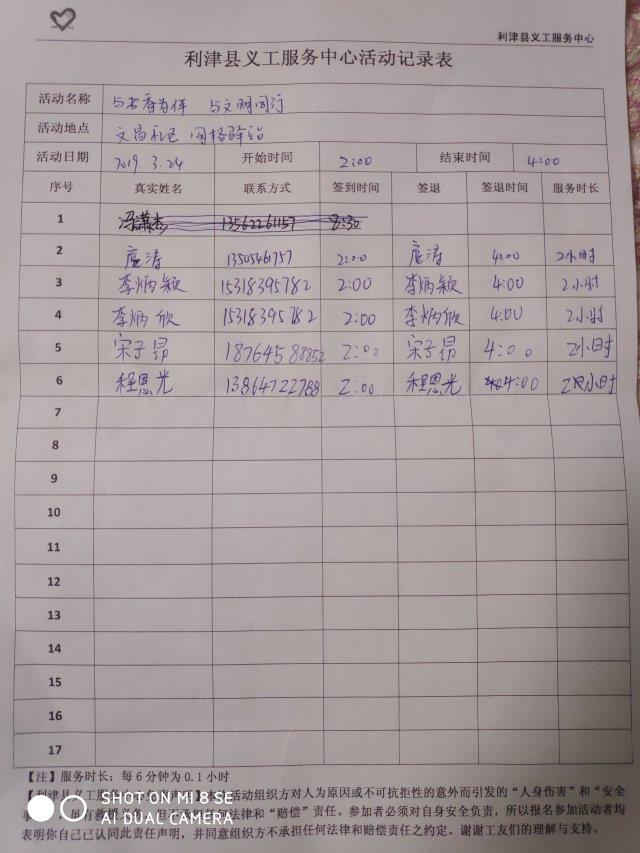 利津县义工服务中心
利津县义工服务中心活动记录表
活动名称 与书香为伴 与文明同行
活动地点 文昌社区 网格驿站
活动日期 2019.3.24 开始时间 2:00 结束时间 4:00
序号 真实姓名 联系方式 签到时间 签退 签退时间 服务时长
1 13562261157 8:30
2 扈涛 1350546757 2:00 扈涛 4:00 2小时
3 李炳颖 15318395782 2:00 李炳颖 4:00 2小时
4 李炳欣 15318395782 2:00 李炳欣 4:00 2小时
5 宋子昂 18764588852 2:00 宋子昂 4:00 2小时
6 程恩光 13864722788 2:00 程恩光 4:00 2小时
7
8
9
10
11
12
13
14
15
16
17
【注】服务时长：每6分钟为0.1小时
【利津县义工服务 活动组织方对人为原因或不可抗拒性的意外而引发的“人身伤害”和“安全
事 法律和“赔偿”责任。参加者必须对自身安全负责，所以报名参加活动者均
表明你自己已认同此责任声明，并同意组织方不承担任何法律和赔偿责任之约定。谢谢工友们的理解与支持。
SHOT ON MI 8 SE
AI DUAL CAMERA